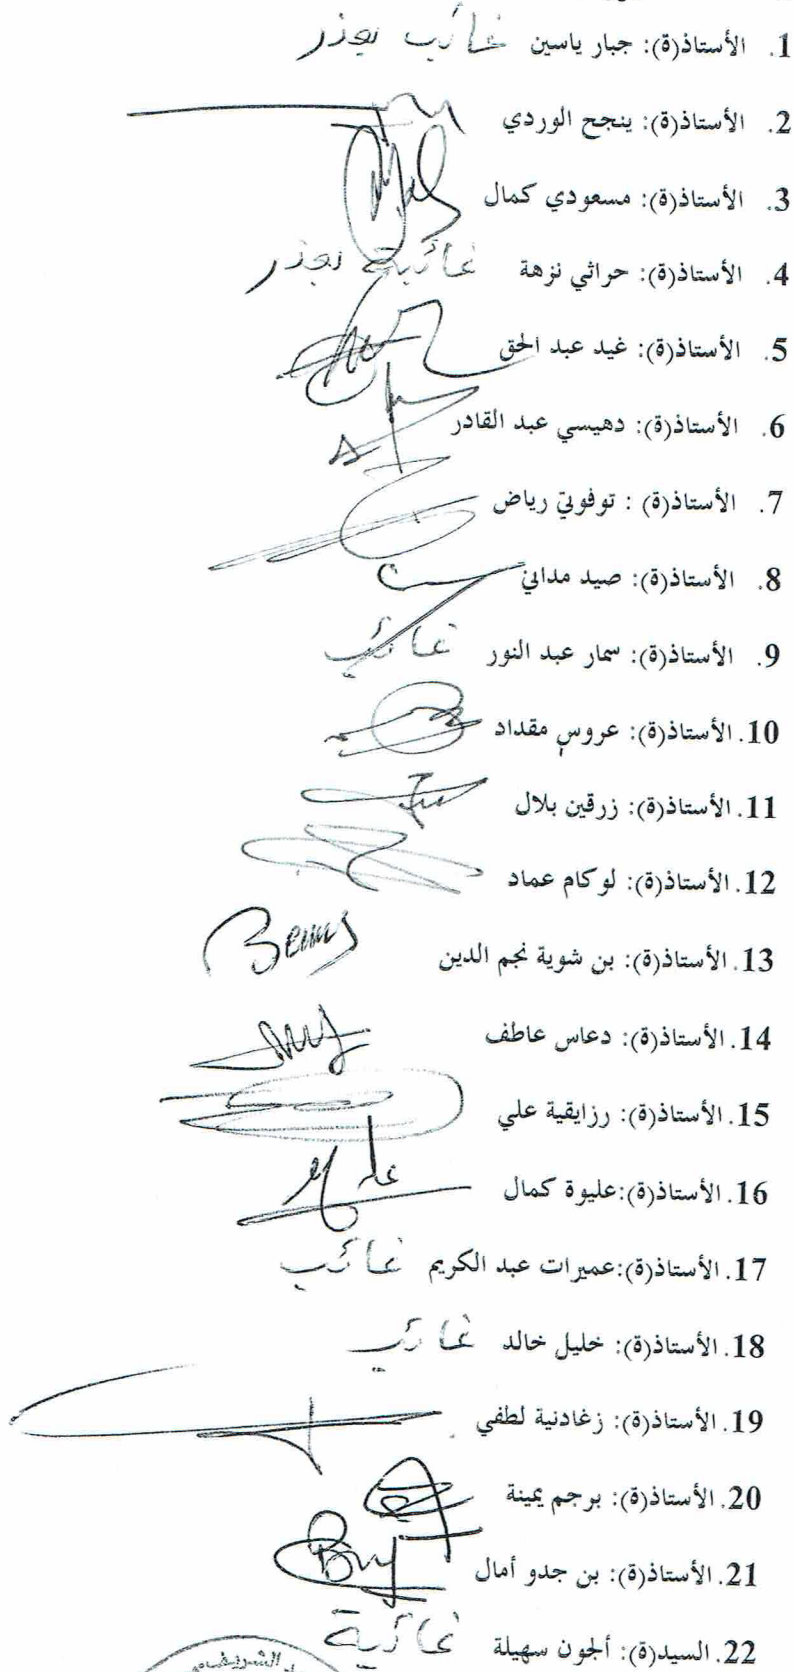 1. الأستاذ(ة): جبار ياسين غائب بعذر
2. الأستاذ(ة): ينجح الوردي
3. الأستاذ(ة): مسعودي كمال
4. الأستاذ(ة): حراثي نزهة غائبة بعذر
5. الأستاذ(ة): غيد عبد الحق
6. الأستاذ(ة): دهيسي عبد القادر
7. الأستاذ(ة) : توفوتي رياض
8. الأستاذ(ة): صيد مداني
9. الأستاذ(ة): سمار عبد النور غائب
10. الأستاذ(ة): عروس مقداد
11. الأستاذ(ة): زرقين بلال
12. الأستاذ(ة): لوكام عماد
13. الأستاذ(ة): بن شوية نجم الدين
14. الأستاذ(ة): دعاس عاطف
15. الأستاذ(ة): رزايقية علي
16. الأستاذ(ة):عليوة كمال
17. الأستاذ(ة):عميرات عبد الكريم غائب
18. الأستاذ(ة): خليل خالد غائب
19. الأستاذ(ة): زغادنية لطفي
20. الأستاذ(ة): برجم يمينة
21. الأستاذ(ة): بن جدو أمال
22. السيد(ة): ألجون سهيلة غائبة
الشريف